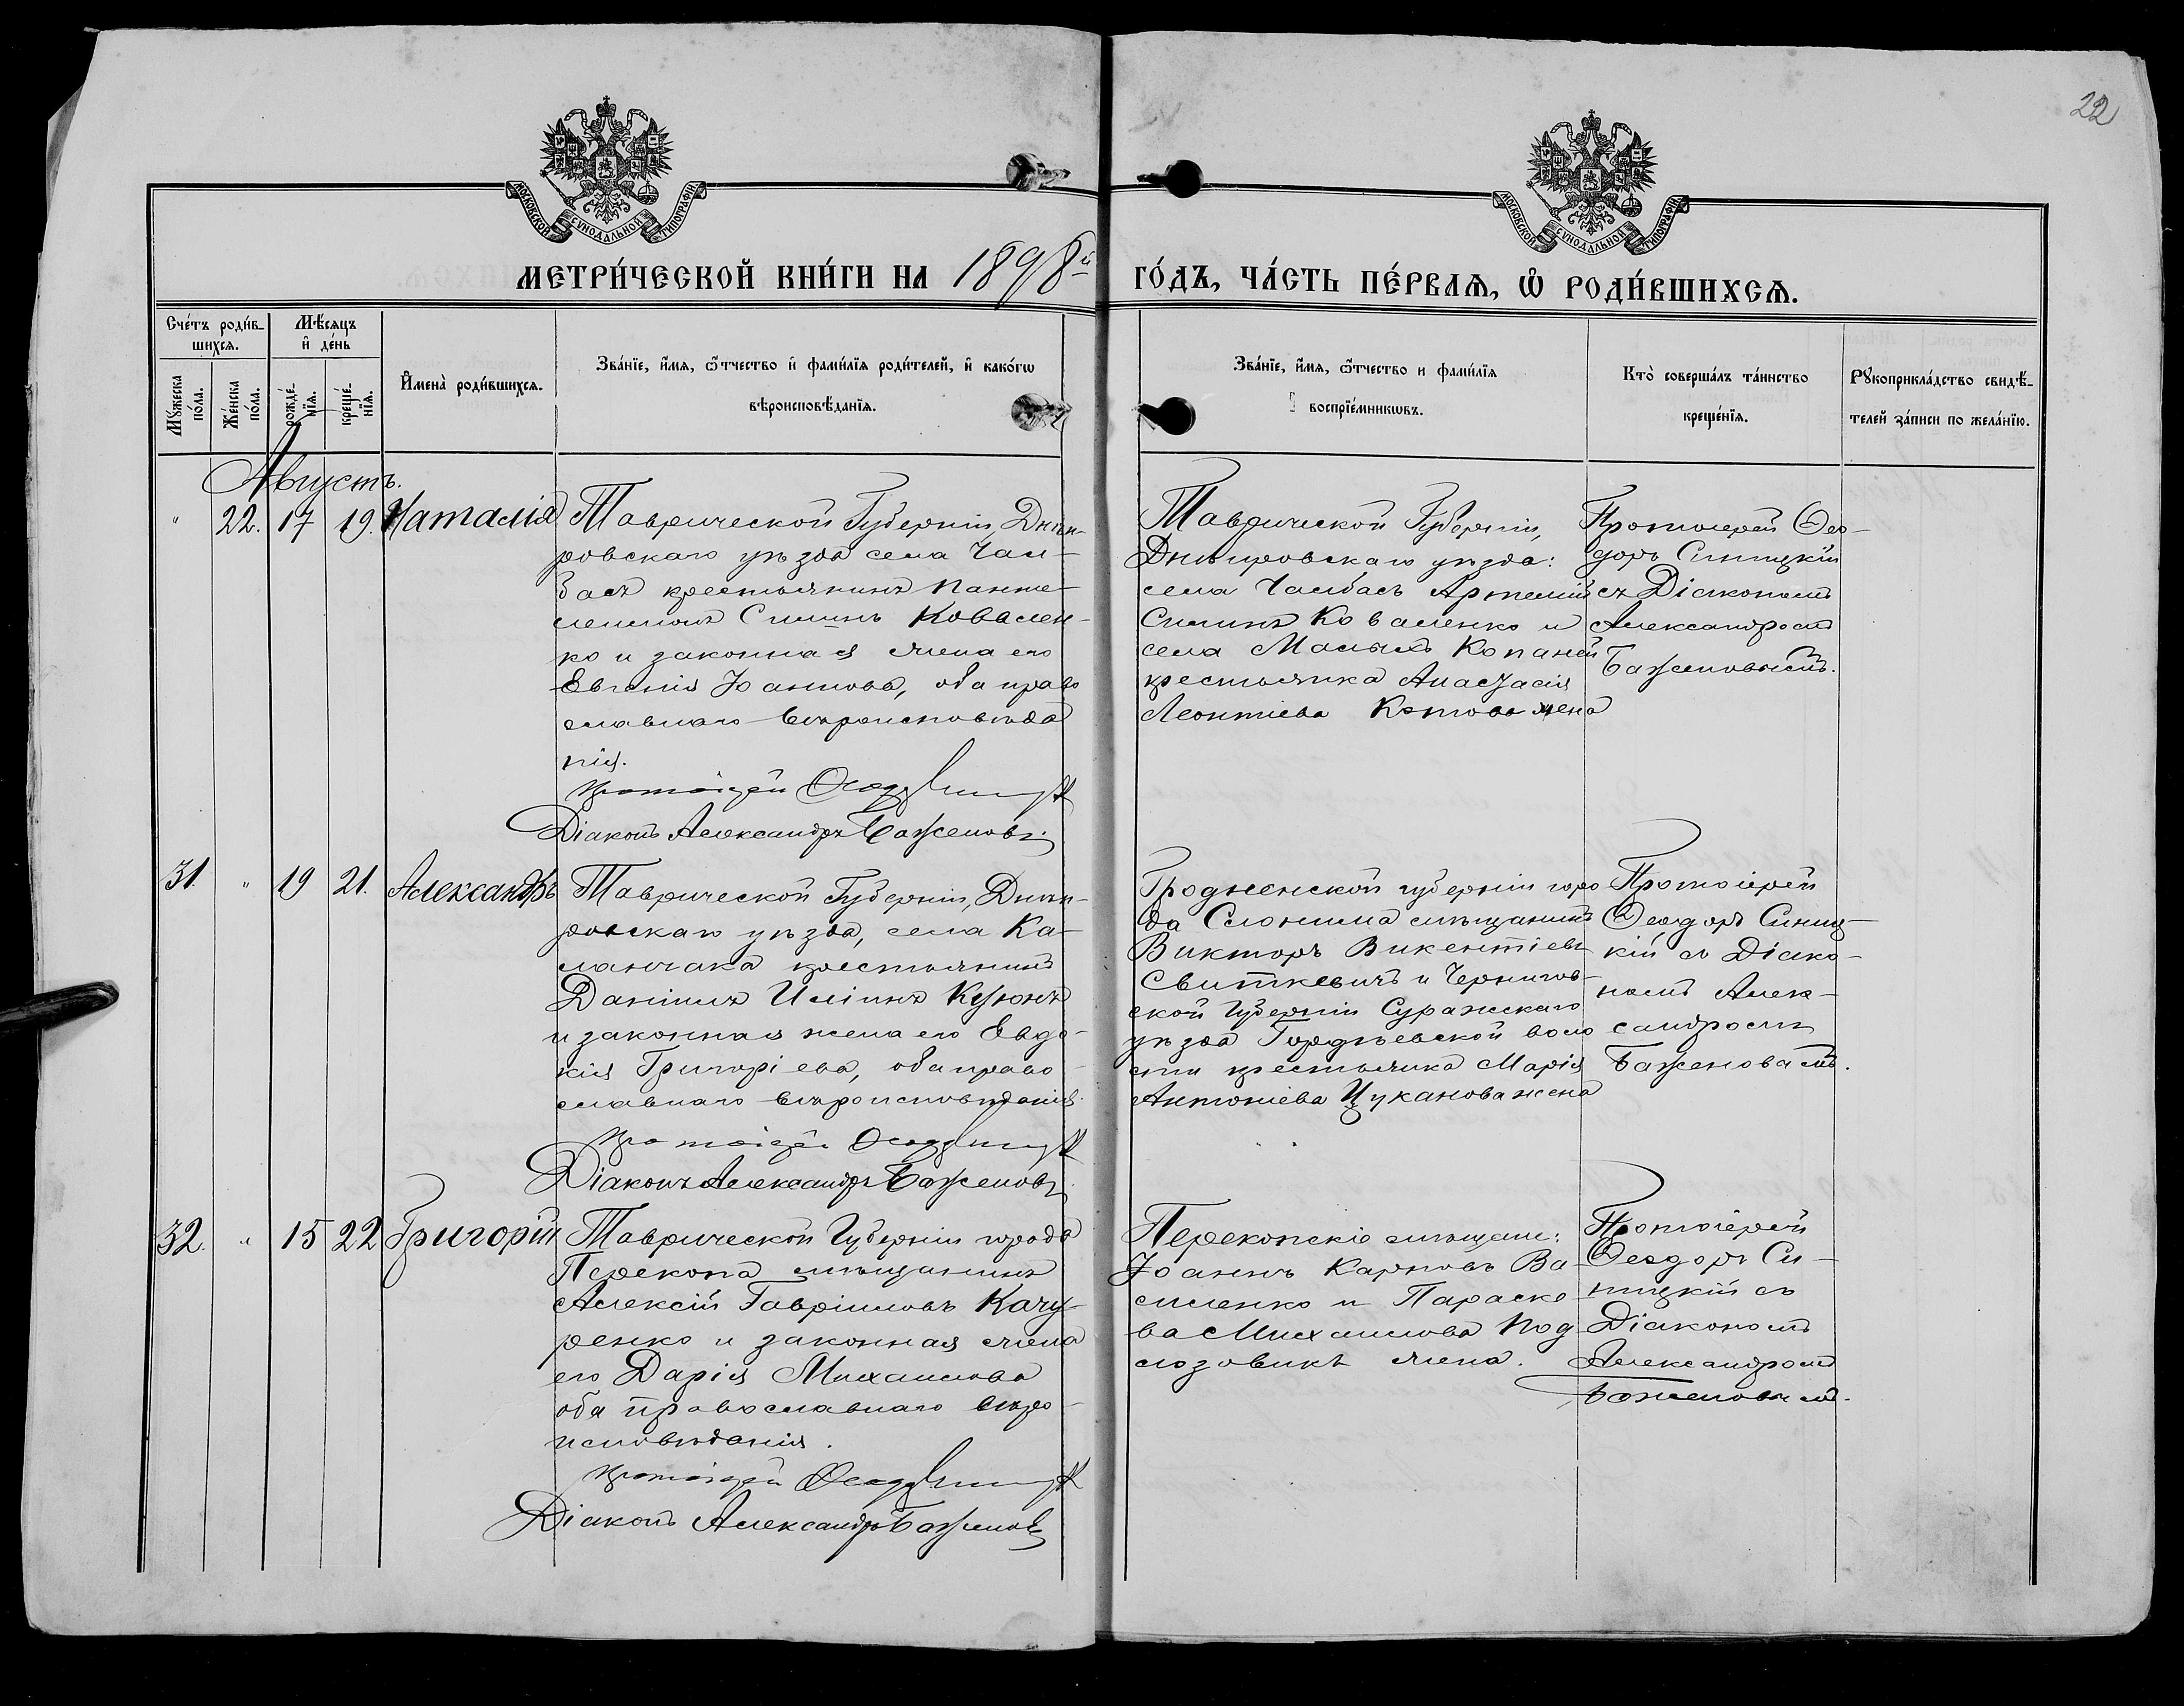 22
МОСКОВСКОЙ СѴНОДАЛЬНОЙ ТИПОГРАФІИ
МОСКОВСКОЙ СѴНОДАЛЬНОЙ ТИПОГРАФІИ
МЕТРИ́ЧЕСКОЙ КНИ́ГИ НА 1898й ГО́ДЪ, ЧА́СТЬ ПЕ́РВАѦ, Ѡ҆ РОДИ́ВШИХСѦ.
Сче́тъ роди́в-
шихсѧ.
Мꙋ́жеска по́ла.
Же́нска по́ла.
Мѣ́сѧцъ
и҆ де́нь
рожде́-
нїѧ.
креще́-
нїѧ.
И҆мена̀ роди́вшихсѧ.
Зва́нїе, и҆́мѧ, ѻ҆́тчество и҆ фами́лїѧ роди́телей, и҆ како́гѡ
вѣроисповѣ́данїѧ.
Зва́нїе, и҆́мѧ, ѻ҆́тчество и фами́лїѧ
воспрїе́мникѡвъ.
Кто̀ соверша́лъ та́инство
креще́нїѧ.
Рꙋкоприкла́дство свидѣ́-
телей за́писи по жела́нїю.
Августъ.
" 22. 17 19. Наталія
Таврической Губерніи, Днѣп-
ровскаго уѣзда села Чал-
басъ крестьянинъ Панте-
леимонъ Силинъ Ковален-
ко и законная жена его
Евгенія Іоаннова, оба право
славнаго вѣроисповѣда
нія.
Протоіерей Ѳеод. Синицкій
Діаконъ Александръ Баженовъ.
Таврической Губерніи,
Днѣпровскаго уѣзда:
села Чалбасъ Артемій
Силинъ Коваленко и
села Малыхъ Копаней
крестьянка Анастасія
Леонтіева Котова жена
Протоіерей Ѳео-
доръ Синицкій
съ Діакономъ
Александромъ
Баженовымъ.
31. " 19 21. Александръ
Таврической Губерніи, Днѣп-
ровскаго уѣзда, села Ка-
ланчака крестьянинъ
Даніилъ Иліинъ
и законная жена его Евдо-
кія Григоріева, оба право-
славнаго вѣроисповѣданія.
Протоіерей Ѳеод. Синицкій
Діаконъ Александръ Баженовъ.
Гродненской губерніи горо
да Слонима мѣщанинъ
Викторъ Викентіевъ
Свиткевичъ и Чернигов-
ской Губерніи Суражскаго
уѣзда Гордѣевской воло
сти крестьянка Марія
Антоніева Цуканова жена
Протоіерей
Ѳеодоръ Синиц-
кій съ Діако-
номъ Алек-
сандромъ
Баженовымъ.
32. " 15 22 Григорій
Таврической Губерніи города
Перекопа мѣщанинъ
Алексій Гавріиловъ Качу-
ренко и законная жена
его Дарія Михаилова
оба православнаго вѣро-
исповѣданія.
Протоіерей Ѳеод. Синицкій
Діаконъ Александръ Баженовъ
Перекопскіе мѣщане:
Іоаннъ Карповъ Ва-
силенко и Параске
ва Михаилова Под
лозовикъ жена.
Протоіерей
Ѳеодоръ Си-
ницкій съ
Діакономъ
Александромъ
Баженовымъ.